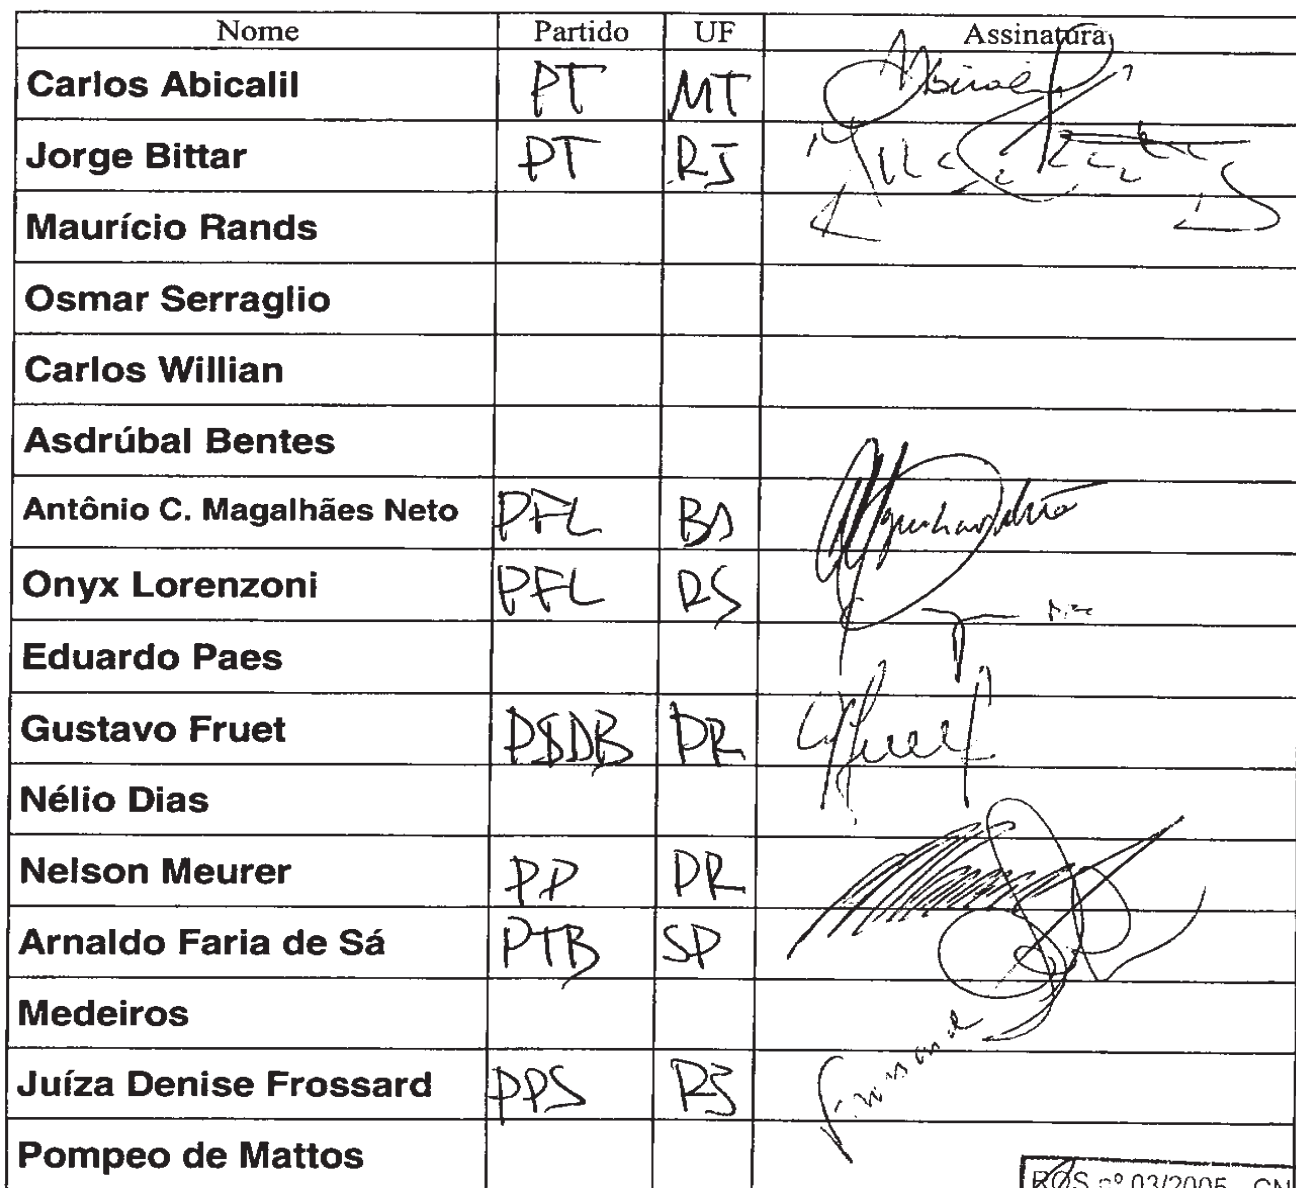 Nome Partido UF Assinatura
Carlos Abicalil PT MT Abicalil
Jorge Bittar PT RJ
Maurício Rands
Osmar Serraglio
Carlos Willian
Asdrúbal Bentes
Antônio C. Magalhães Neto PFL BA
Onyx Lorenzoni PFL RS
Eduardo Paes
Gustavo Fruet PSDB PR GFruet
Nélio Dias
Nelson Meurer PP PR
Arnaldo Faria de Sá PTB SP
Medeiros
Juíza Denise Frossard PPS RJ
Pompeo de Mattos
RQS nº 03/2005 - CN